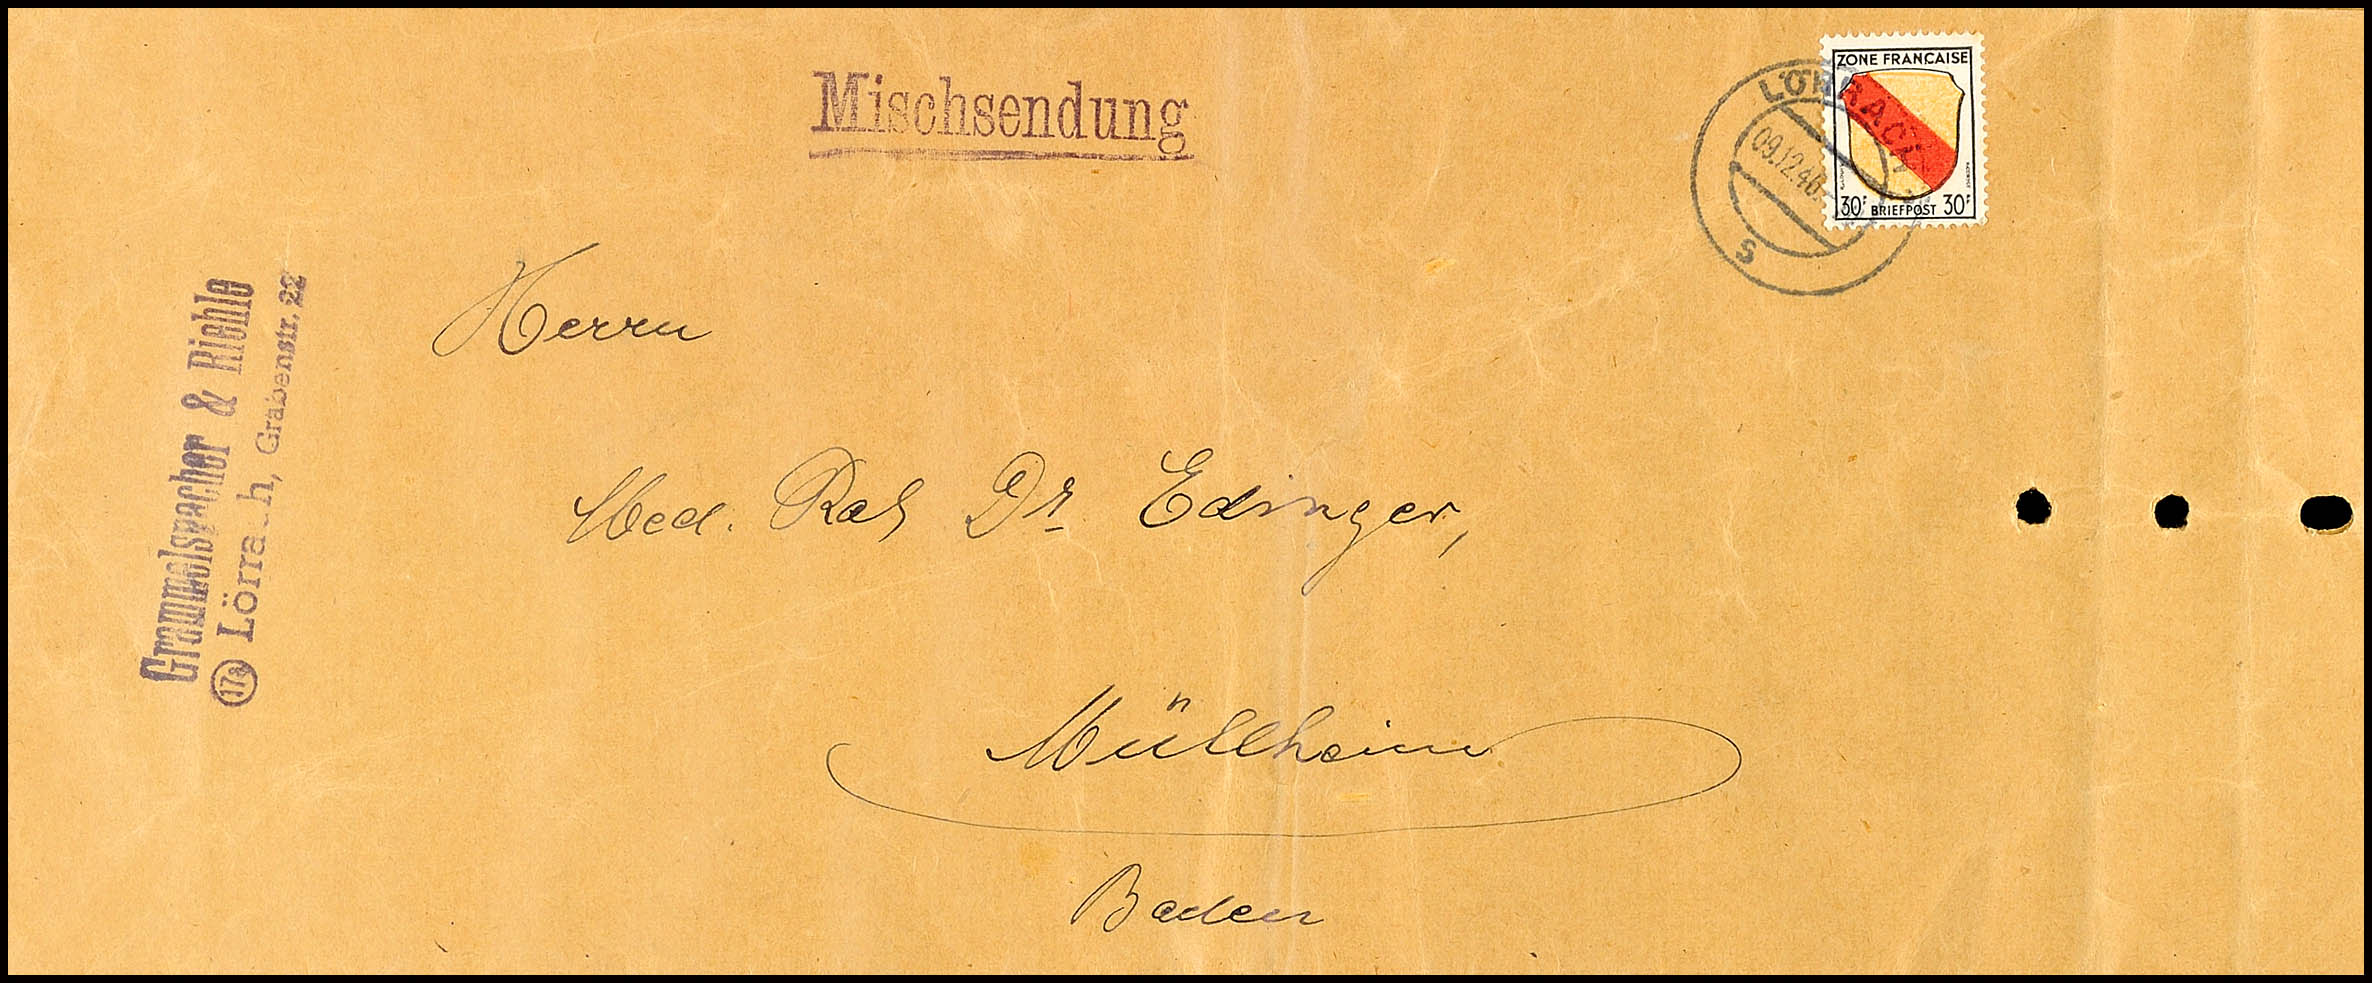 Mischsendung
ZONE FRANÇAISE
LÖRRACH
09.12.46
s
30F BRIEFPOST 30F
Grammelspacher & Riehle
17a Lörrach, Grabenstr. 22
Herrn
Med. Rat Dr Edinger,
Müllheim
Baden